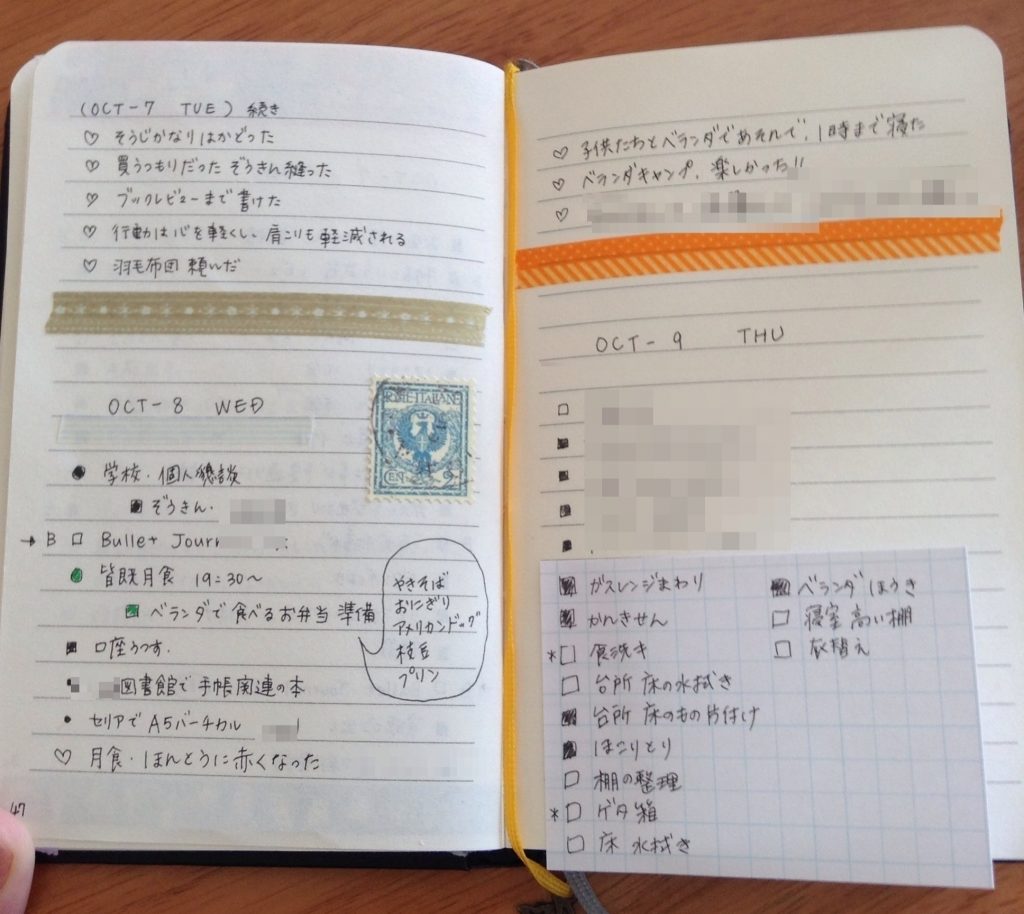 (OCT-7 TUE) 続き
♡ そうじかなりはかどった
♡ 買うつもりだった ぞうきん縫った
♡ ブックレビューまで書けた
♡ 行動は心を軽くし、肩こりも軽減される
♡ 羽毛布団 頼んだ
OCT-8 WED
POSTE ITALIANE
CEN
● 学校・個人懇談
ぞうきん・
→ B □ Bullet Jour
● 皆既月食 19:30〜
ベランダで食べるお弁当 準備
やきそば
おにぎり
アメリカンドッグ
枝豆
プリン
■ 口座うつす.
図書館で手帳関連の本
• セリアでA5バーチカル
♡ 月食・ほんとうに赤くなった
47
♡ 子供たちとベランダであそんで、1時まで寝た
♡ ベランダキャンプ、楽しかった!!
♡
OCT-9 THU
■ ガスレンジまわり
■ かんきせん
*□ 食洗き
□ 台所 床の水拭き
■ 台所 床のもの片付け
■ ほこりとり
□ 棚の整理
*□ ゲタ箱
□ 床 水拭き
■ ベランダ ほうき
□ 寝室 高い棚
□ 衣替え